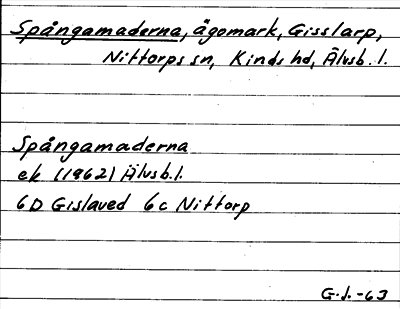 Spångamaderna, ägomark, Gisslarp,
Nittorps sn, Kinds hd, Älvsb. l.
Spångamaderna
ek (1962) Älvsb. l.
6D Gislaved 6c Nittorp
G.J.-63